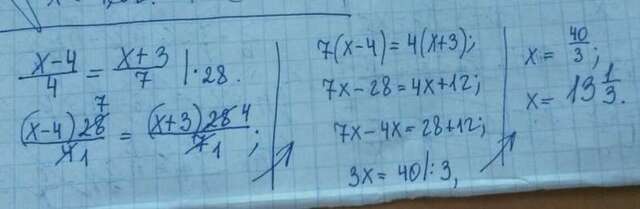 (x-4)/4 = (x+3)/7 |·28.
(x-4)28 7/4 1 = (x+3)28 4/7 1;
7(x-4)=4(x+3);
7x-28=4x+12;
7x-4x=28+12;
3x=40|:3,
x= 40/3;
x= 13 1/3.